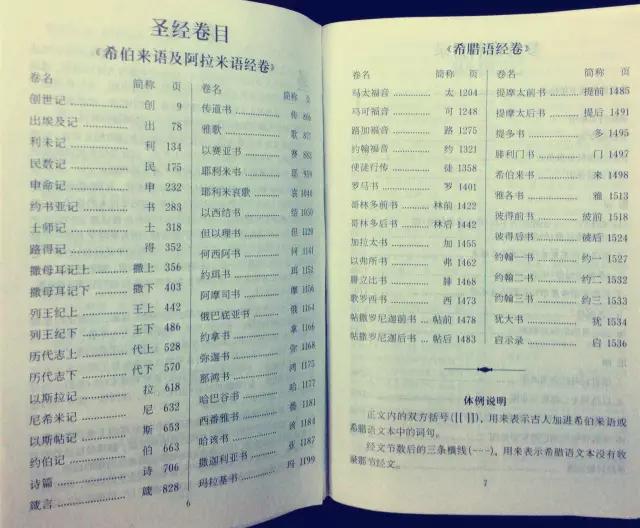 圣经卷目
《希伯来语及阿拉米语经卷》
卷名 简称 页
创世记 创 9
出埃及记 出 78
利未记 利 134
民数记 民 175
申命记 申 232
约书亚记 书 283
士师记 士 318
路得记 得 352
撒母耳记上 撒上 356
撒母耳记下 撒下 403
列王纪上 王上 442
列王纪下 王下 486
历代志上 代上 528
历代志下 代下 570
以斯拉记 拉 618
尼希米记 尼 632
以斯帖记 斯 653
约伯记 伯 663
诗篇 诗 706
箴言 箴 828
卷名 简称 页
传道书 传 866
雅歌 歌
以赛亚书 赛
耶利米书
耶利米哀歌 哀
以西结书 结 1050
但以理书 但
何西阿书 何 1141
约珥书 珥 1153
阿摩司书 摩
俄巴底亚书 俄 1164
约拿书 拿 1166
弥迦书 弥 1168
那鸿书 鸿 1175
哈巴谷书 哈 1177
西番雅书 番 1181
哈该书 该
撒迦利亚书 亚 1187
玛拉基书 玛 1199
6
《希腊语经卷》
卷名 简称 页
马太福音 太 1204
马可福音 可 1248
路加福音 路 1275
约翰福音 约 1321
使徒行传 徒 1358
罗马书 罗 1401
哥林多前书 林前 1422
哥林多后书 林后 1442
加拉太书 加 1455
以弗所书 弗 1462
腓立比书 腓 1468
歌罗西书 西 1473
帖撒罗尼迦前书 帖前 1478
帖撒罗尼迦后书 帖后 1483
卷名 简称 页
提摩太前书 提前 1485
提摩太后书 提后 1491
提多书 多 1495
腓利门书 门 1497
希伯来书 来 1498
雅各书 雅 1513
彼得前书 彼前 1518
彼得后书 彼后 1524
约翰一书 约一 1527
约翰二书 约二 1532
约翰三书 约三 1533
犹大书 犹 1534
启示录 启 1536
体例说明
正文内的双方括号([[ ]])，用来表示古人加进希伯来语或
希腊语文本中的词句。
经文节数后的三条横线(---)，用来表示希腊语文本没有收
录那节经文。
7